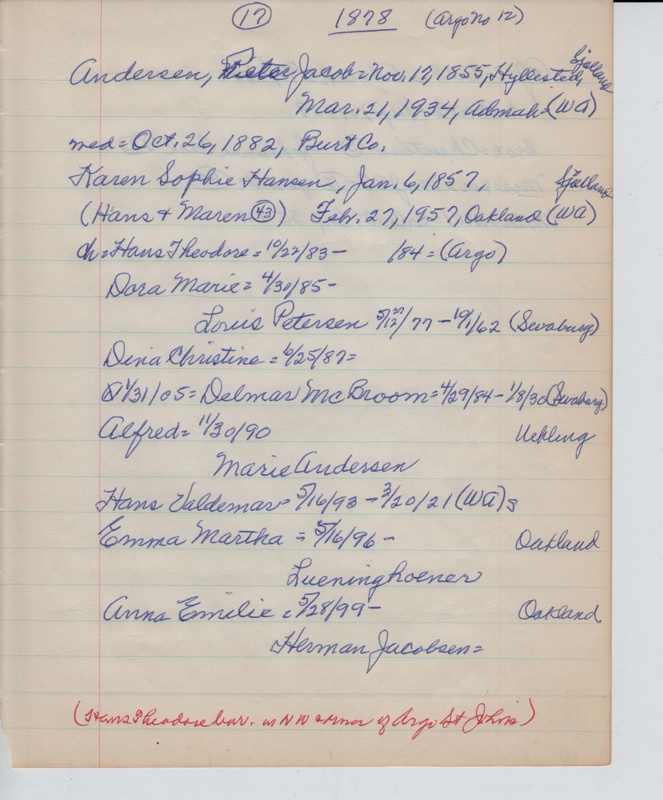 (17) 1878 (Argo No 12)
Andersen, Jacob = Nov. 17, 1855, Hyllested, Sjelland
Mar. 21, 1934, Admah = (WA)
med = Oct. 26, 1882, Burt Co.
Karen Sophie Hansen, Jan. 6, 1857, Sjelland
(Hans + Maren (43)) Febr. 27, 1957, Oakland (WA)
ch = Hans Theodore = 10/22/83 - /84 = (Argo)
Dora Marie = 4/30/85 -
Louis Petersen /77 - /62 (Swaburg)
Dina Christine = 6/25/87 =
1/31/05 = Delmar McBroom = 4/29/84 - 1/8/30 (Swaburg)
Alfred = 11/30/90 Uehling
Marie Andersen
Hans Valdemar = 5/16/93 - 3/20/21 (WA) s
Emma Martha = 5/16/96 - Oakland
Lueninghoener
Anna Emilie = 5/28/99 - Oakland
Herman Jacobsen =
(Hans Theodore bur. in NW corner of Argo St Johns)